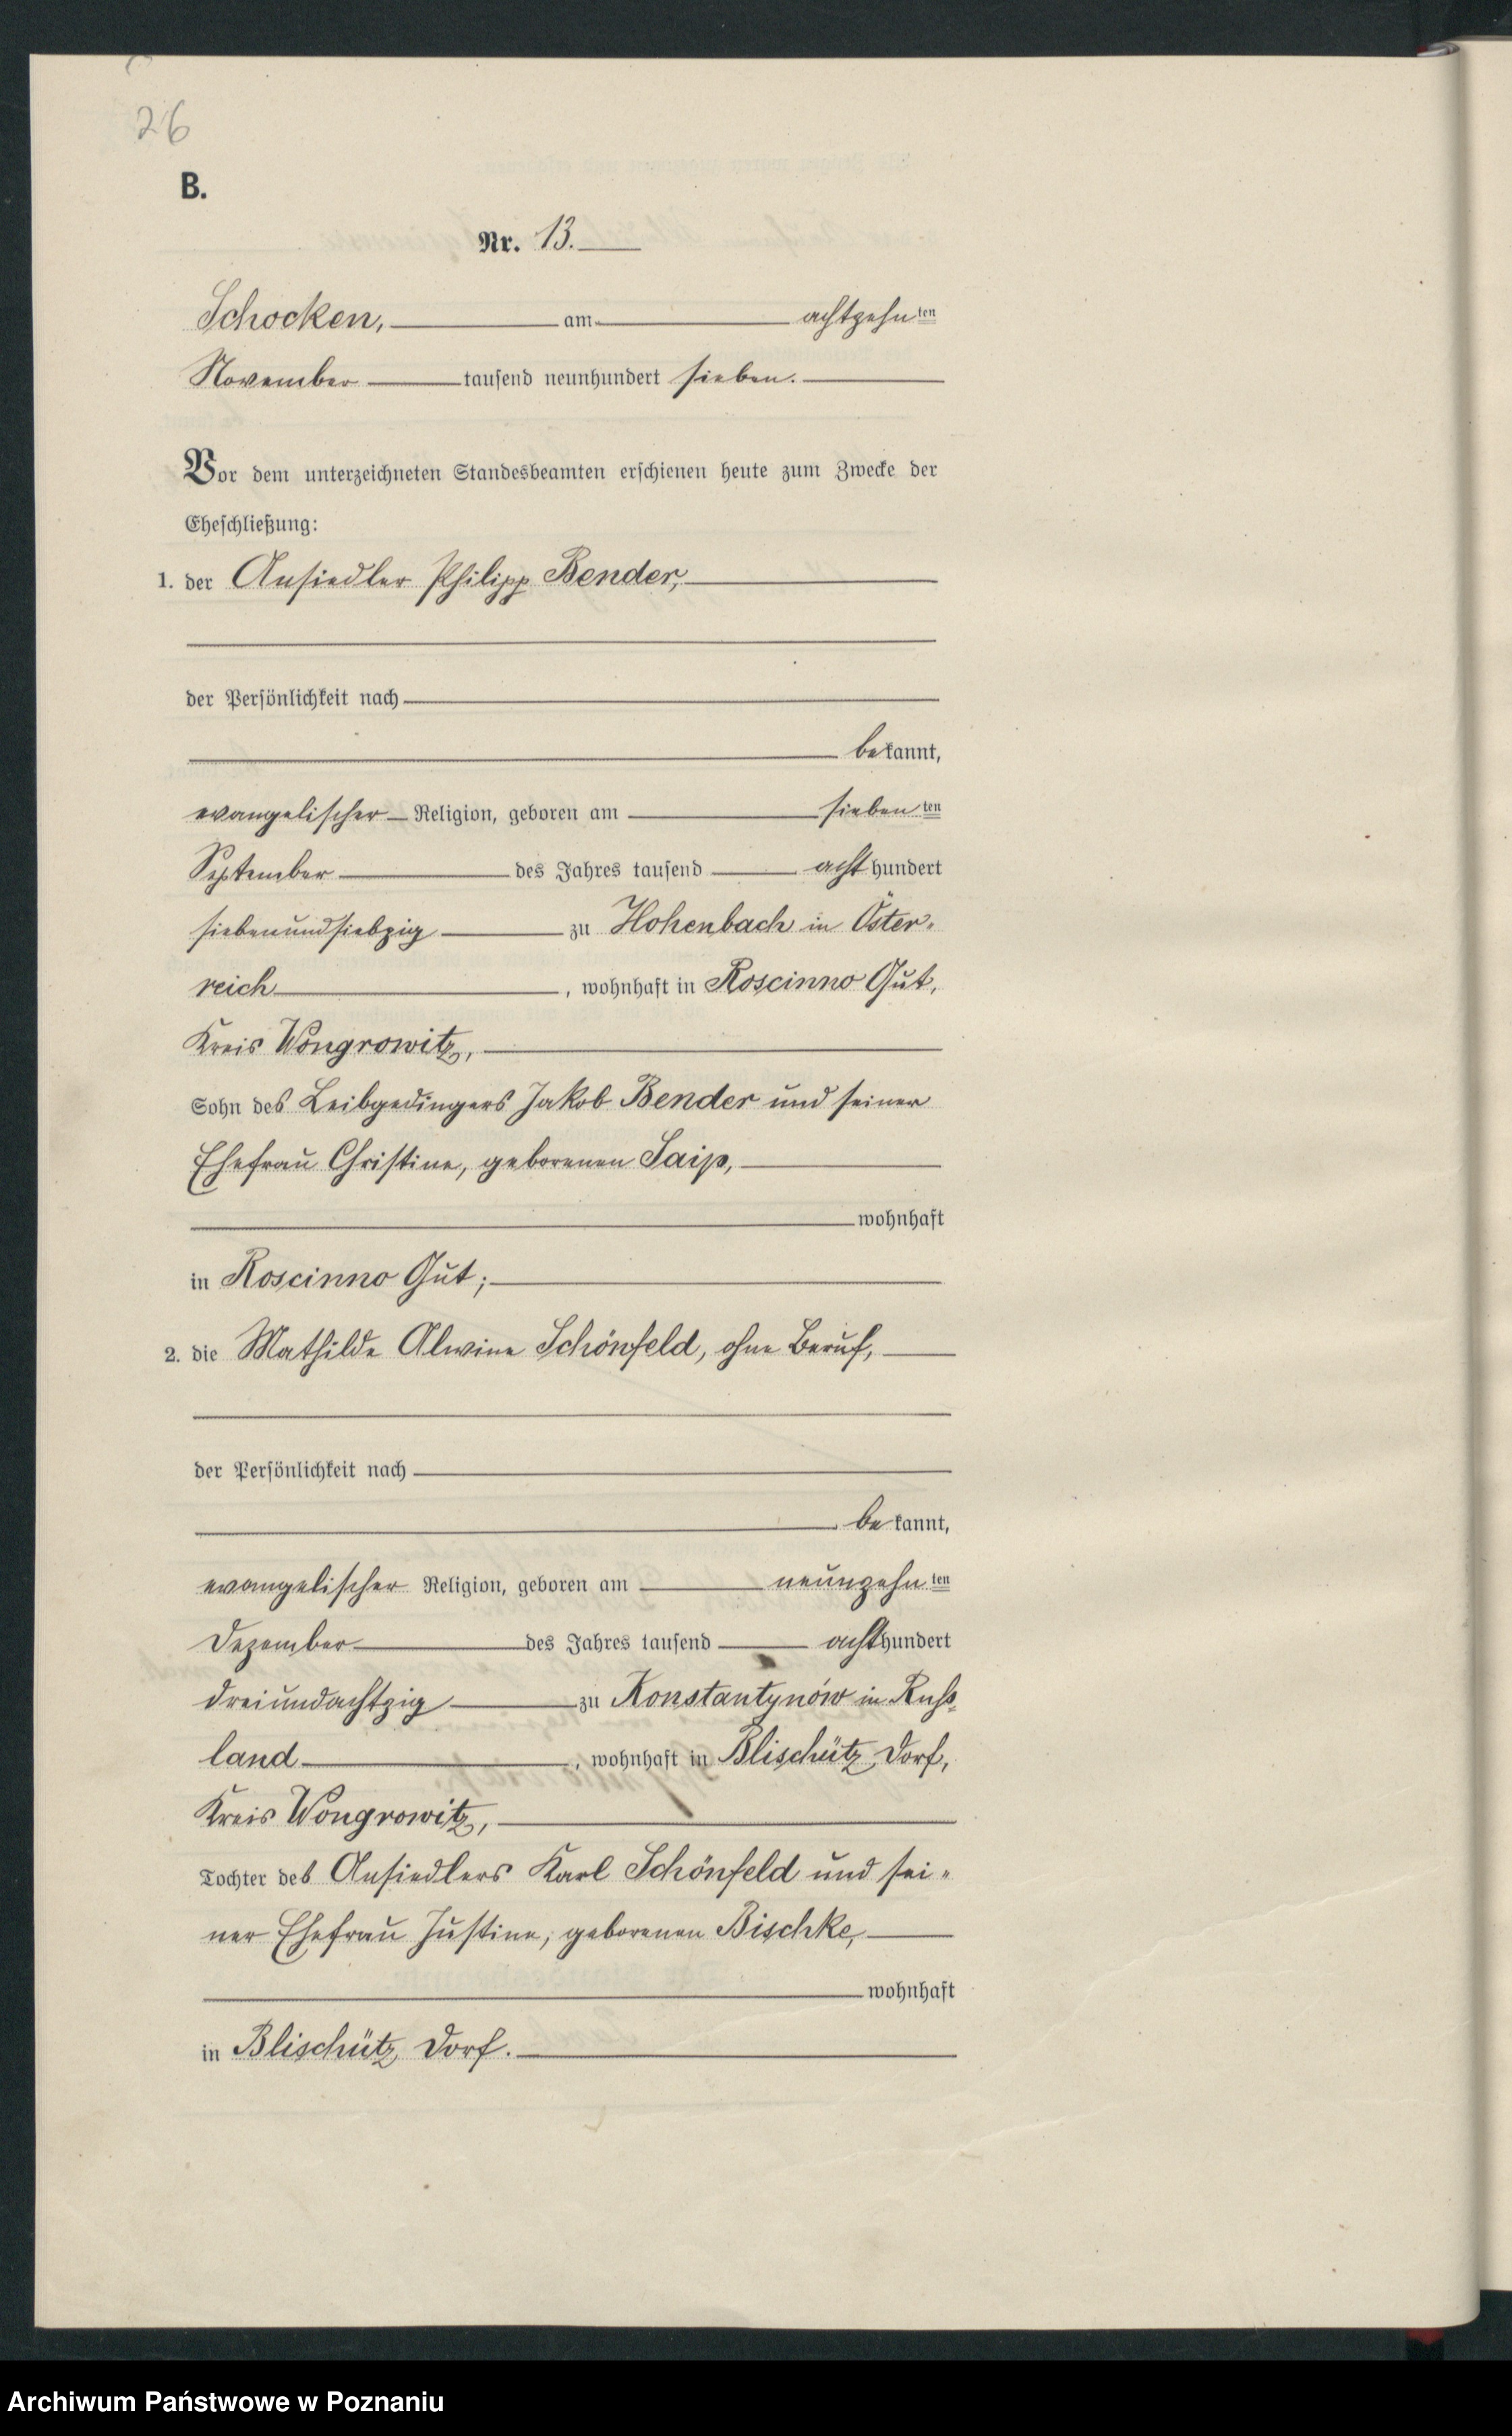 26
B.
Nr. 13.
Schocken, am achtzehn ten
November tausend neunhundert sieben.
Vor dem unterzeichneten Standesbeamten erschienen heute zum Zwecke der
Eheschließung:
1. der Ansiedler Philipp Bender,
der Persönlichkeit nach
bekannt,
evangelischer Religion, geboren am sieben ten
September des Jahres tausend acht hundert
siebenundsiebzig zu Hohenbach in Öster-
reich, wohnhaft in Roscinno Gut,
Kreis Wongrowitz,
Sohn des Leibgedingers Jakob Bender und seiner
Ehefrau Christine, geborenen Saip,
wohnhaft
in Roscinno Gut;
2. die Mathilde Alwine Schönfeld, ohne Beruf,
der Persönlichkeit nach
bekannt,
evangelischer Religion, geboren am neunzehn ten
Dezember des Jahres tausend acht hundert
dreiundachtzig zu Konstantynów in Russ-
land, wohnhaft in Blischütz Dorf,
Kreis Wongrowitz,
Tochter des Ansiedlers Karl Schönfeld und sei-
ner Ehefrau Justine, geborenen Bischke,
wohnhaft
in Blischütz Dorf.
Archiwum Państwowe w Poznaniu